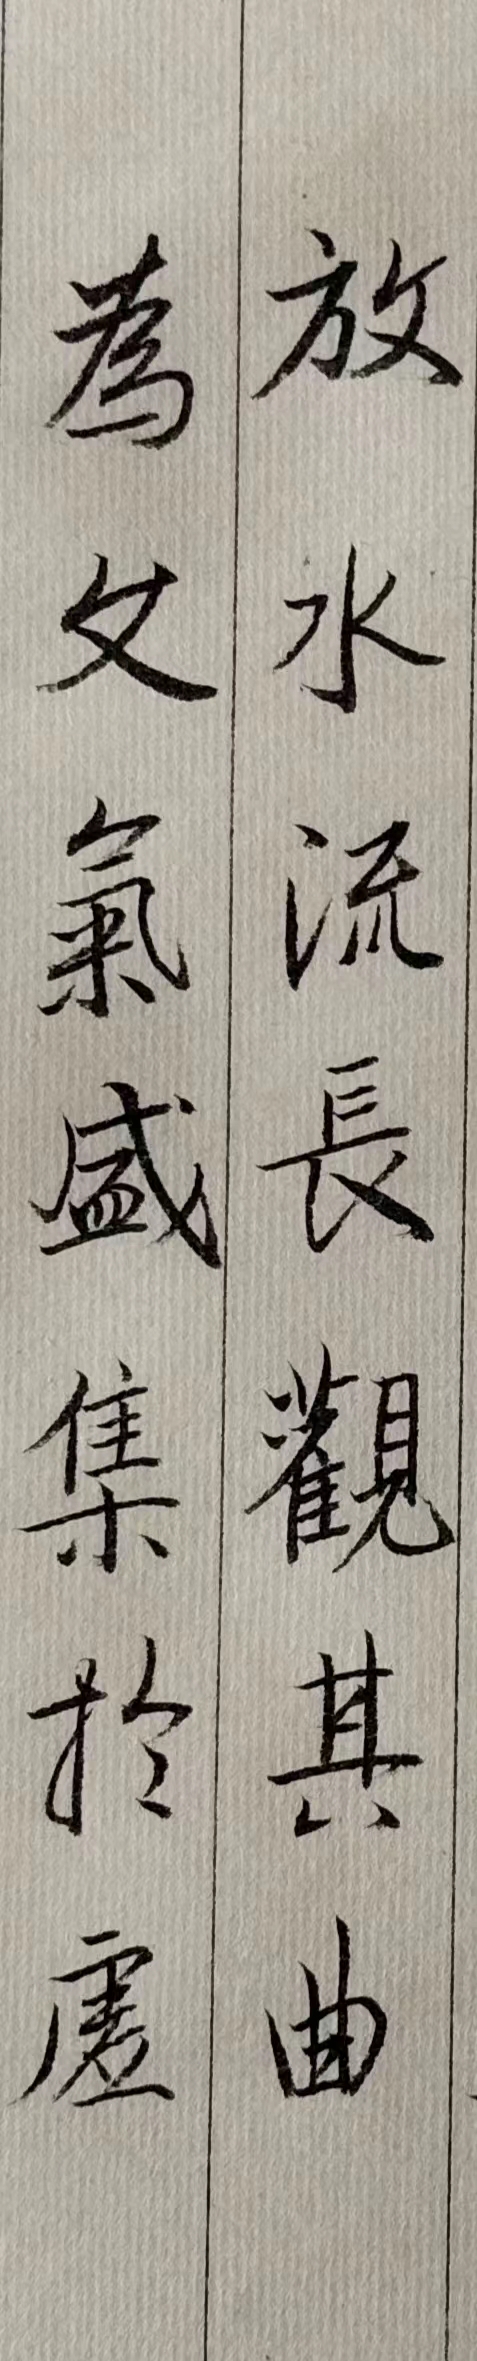 放水流長觀其曲
為文氣盛集於虛